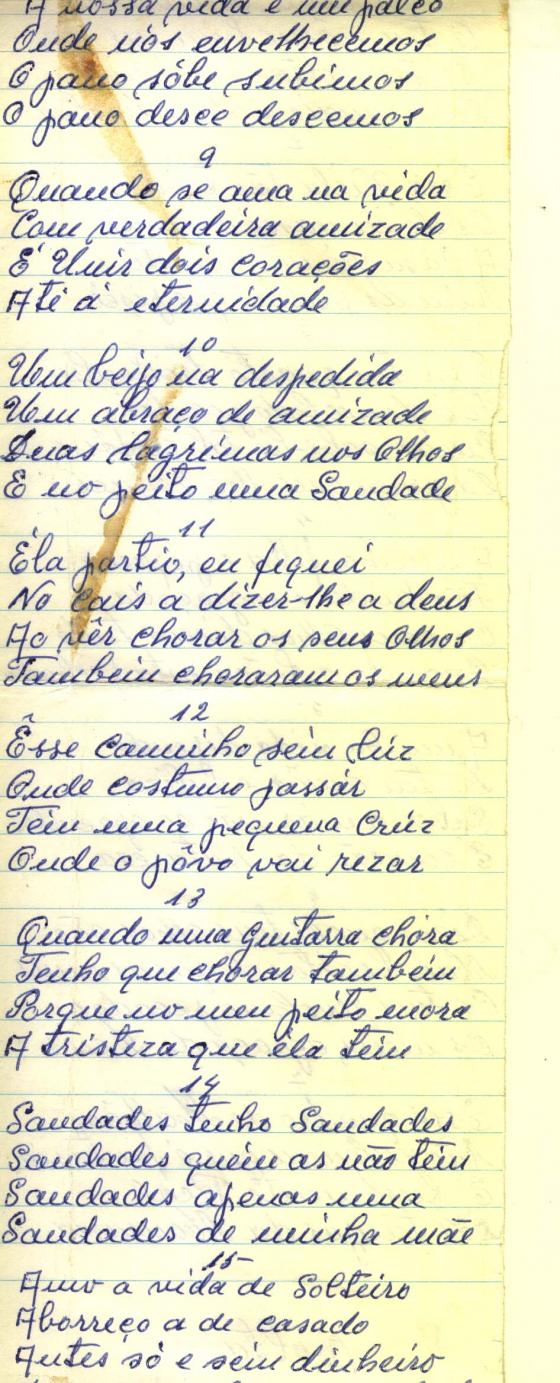 A nossa vida é um palco
Onde nós envelhecemos
O pano sóbe subimos
O pano desce descemos
9
Quando se ama na vida
Com verdadeira amizade
É Unir dois corações
Até á eternidade
10
Um beijo na despedida
Um abraço de amizade
Duas lágrimas nos Olhos
E no peito uma Saudade
11
Éla partio, eu fiquei
No Cais a dizer-lhe a deus
Ao vêr chorar os seus Olhos
Também choraram os meus
12
Êsse Caminho sem lúz
Onde costumo passár
Tem uma pequena Crúz
Onde o pôvo vai rezar
13
Quando uma guitarra chóra
Tenho que chorar também
Porque no meu peito mora
A tristeza que éla tem
14
Saudades tenho Saudades
Saudades quem as não tem
Saudades apenas uma
Saudades de minha mãe
15
Amo a vida de Solteiro
Aborreço a de casado
Antes só e sem dinheiro